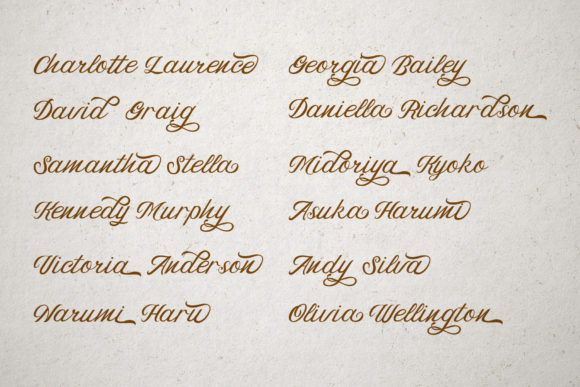 Charlotte Laurence
David Graig
Samantha Stella
Kennedy Murphy
Victoria Anderson
Narumi Haru
Georgia Bailey
Daniella Richardson
Midoriya Kyoko
Asuka Harumi
Andy Silva
Olivia Wellington